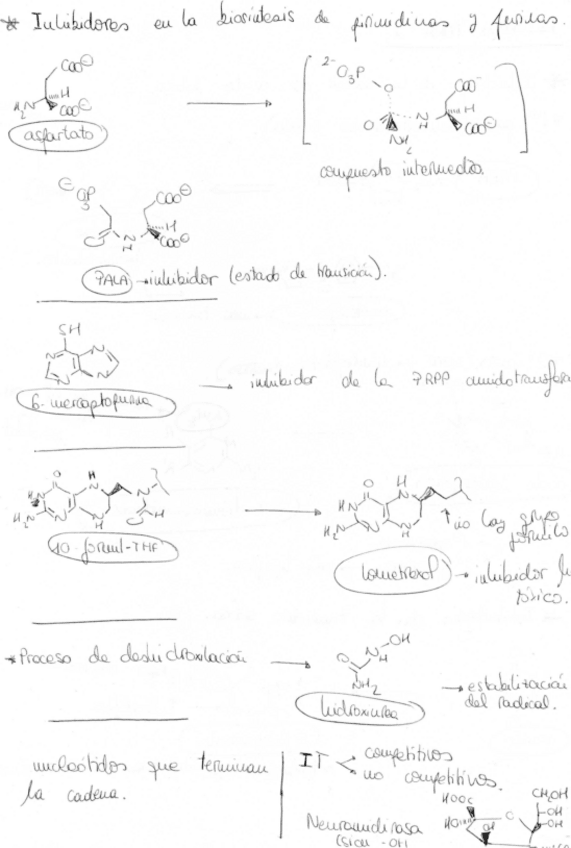 * Inhibidores en la biosíntesis de pirimidinas y purinas.
COO⊖
H
H₂N COO⊖
aspartato
2- O₃P
O
COO⁻
O N H
H
NH₂ COO⊖
compuesto intermedio.
⊖ O₃P COO⊖
H
O N COO⊖
H
PALA → inhibidor (estado de transición).
SH
N N
N N
6-mercaptopurina → inhibidor de la PRPP amidotransfera
O H
HN N N
H₂N N N O H
H
10-formil-THF
O H
HN N
H₂N N N
H
↑ no hay grupo
formilo
lometrexol → inhibidor
tóxico.
* Proceso de deshidroxilación →
OH
O N
H
NH₂
hidroxiurea → estabilización
del radical.
nucleótidos que terminan
la cadena.
IT competitivos
no competitivos.
Neuraminidasa
HOOC CH₂OH
HO O OH
OH OH